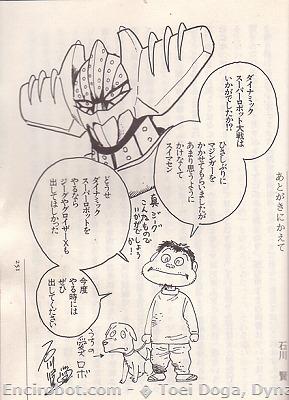 あとがきにかえて
石川 賢
ダイナミック
スーパーロボット大戦は
いかがでしたか!?
ひさしぶりに
マジンガーを
かかせてもらいましたが
あまり思うように
かけなくて
スイマセン
どうせ
ダイナミック
スーパーロボットを
やるなら
ジーグやグロイザーXも
出してほしかった
真ジーグ
こんなもので
いかがでしょうかー!
今度
やる時には
ぜひ
出してください
うちの
愛犬 ロボ
石川賢
251
Encirobot.com - Toei Doga, Dyna